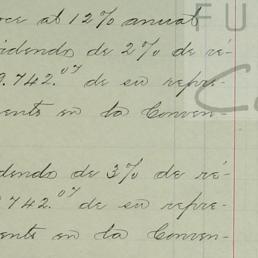 oce al 12% anual
idendo de 2% de ré-
9.742.07 de su repre-
mente en la Conven-
dendo de 3% de ré-
.742.07 de su repre-
ente en la Conven-
FU